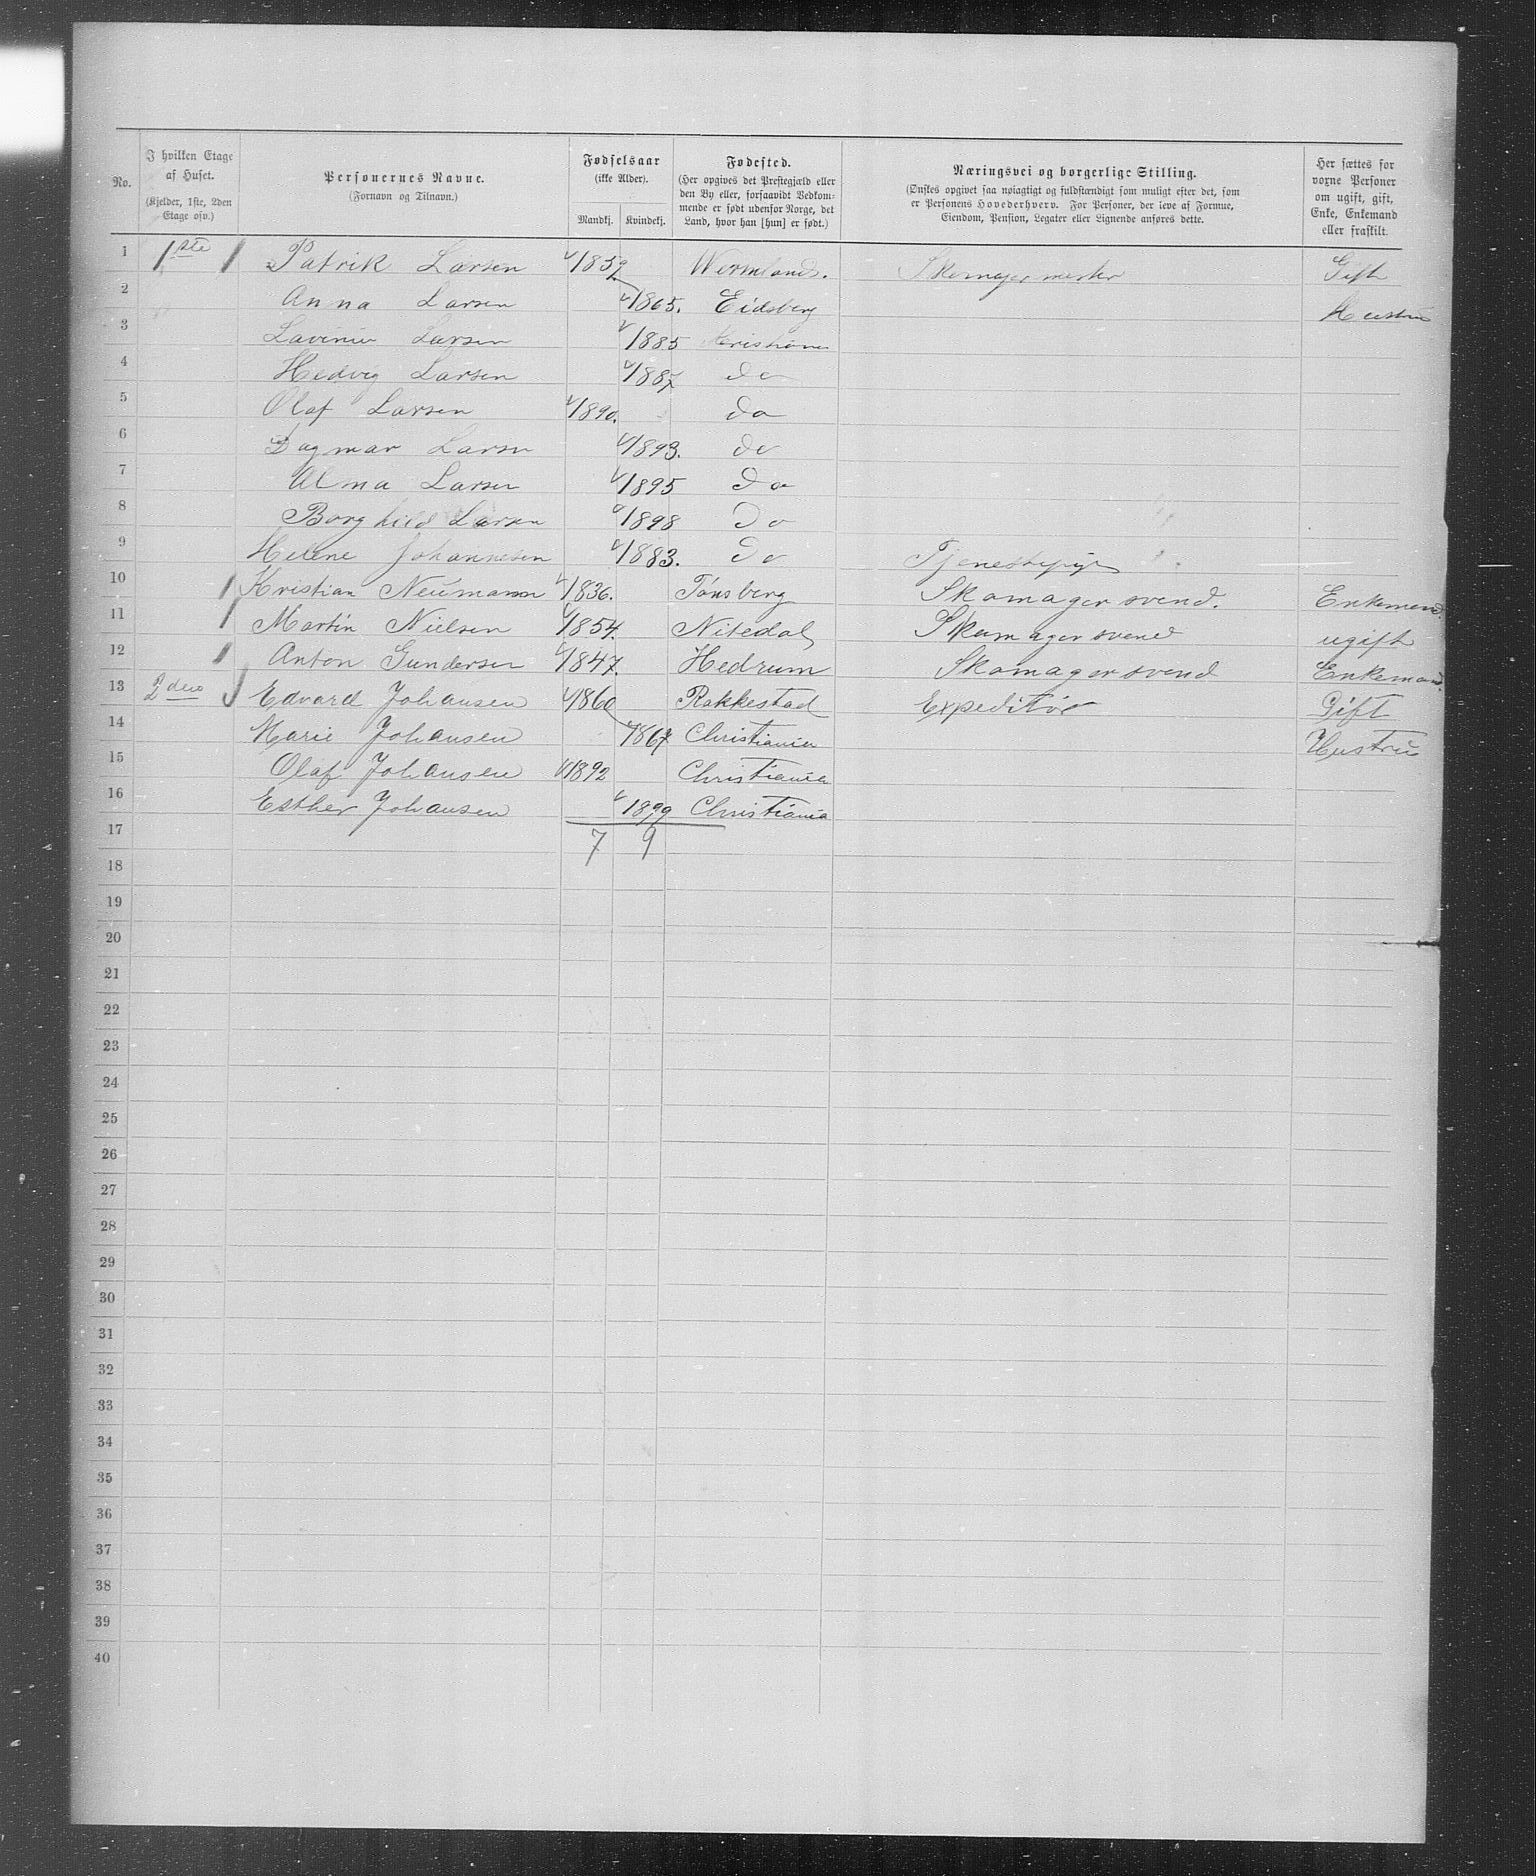 No.
I hvilken Etage af Huset. (Kjelder, 1ste, 2den Etage osv.)
Personernes Navne. (Fornavn og Tilnavn.)
Fødselsaar (ikke Alder). Mandkj. Kvindekj.
Fødested. (Her opgives det Prestegjæld eller den By eller, forsaavidt Vedkommende er født udenfor Norge, det Land, hvor han [hun] er født.)
Næringsvei og borgerlige Stilling. (Ønskes opgivet saa nøiagtigt og fuldstændigt som muligt efter det, som er Personens Hovederhverv. For Personer, der leve af Formue, Eiendom, Pension, Legater eller Lignende anføres dette.
Her sættes for voxne Personer om ugift, gift, Enke, Enkemand eller fraskilt.
1 1ste Patrik Larsen 1859 Wermland. Skomager mester Gift
2 Anna Larsen 1865. Eidsberg Hustru
3 Lavinia Larsen 1885 Kristiania
4 Hedvig Larsen 1887 do
5 Olaf Larsen 1890. do
6 Dagmar Larsen 1893. do
7 Alma Larsen 1895 do
8 Borghild Larsen 1898 do
9 Helene Johannesen 1883. do Tjenestepige
10 Kristian Neumann 1836. Tønsberg Skomagersvend. Enkemand.
11 Martin Nielsen 1854. Nitedal Skomagersvend ugift
12 Anton Gundersen 1847. Hedrum Skomagersvend Enkemand.
13 2den Edvard Johansen 1860 Rakkestad Expeditør Gift
14 Marie Johansen 1867 Christiania Hustru
15 Olaf Johansen 1892 Christiania
16 Esther Johansen 1899 Christiania
17 7 9
18
19
20
21
22
23
24
25
26
27
28
29
30
31
32
33
34
35
36
37
38
39
40